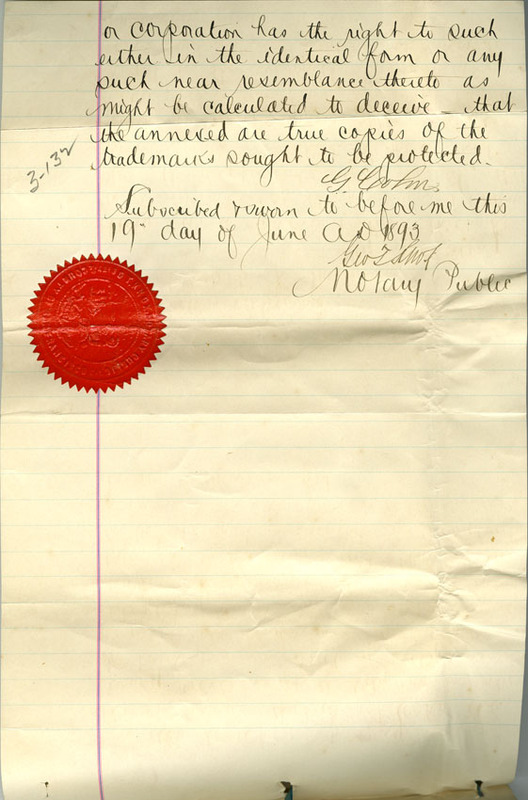 or corporation has the right to such
either in the identical form or any
such near resemblance thereto as
might be calculated to deceive that
the annexed are true copies of the
trademarks sought to be protected.
3-132
Subscribed & sworn to before me this
19" day of June A.D 1893
Notary Public